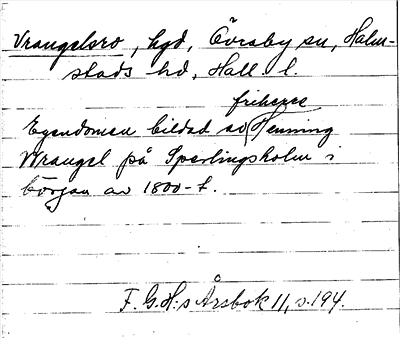 Vrangelsro, hgd, Övraby sn, Halm-
stads hd, Hall. l.
friherre
Egendomen bildad av Henning
Wrangel på Sperlingsholm i
början av 1800-t.
F. G. H:s Årsbok 11, s. 194.